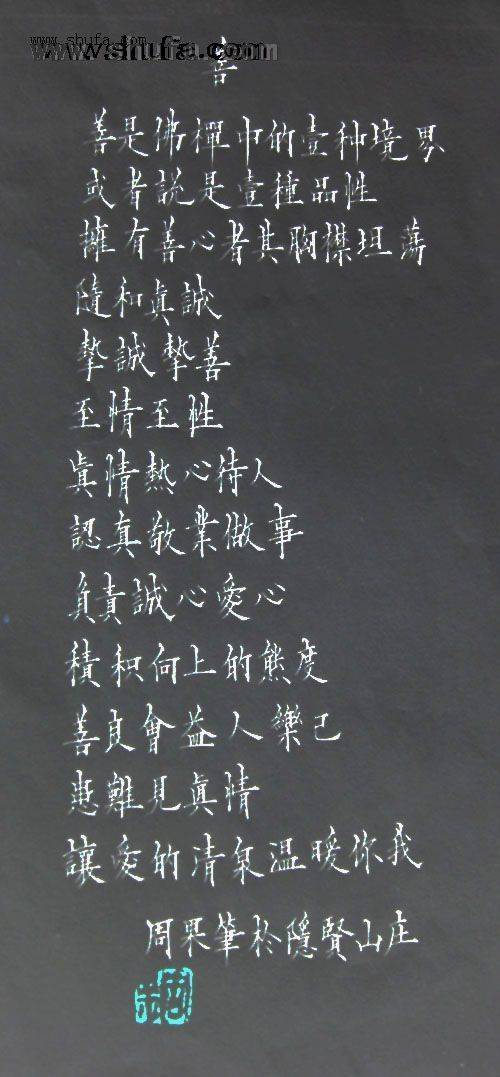 www.shufa.com
www.shufa.com
善
善是佛禪中的壹种境界
或者説是壹種品性
擁有善心者其胸襟坦蕩
隨和眞誠
摯誠摯善
至情至性
眞情熱心待人
認真敬業做事
負責誠心愛心
積积向上的熊度
善良會益人樂己
患難見眞情
讓愛的清泉温暖你我
周果筆於隱賢山庄